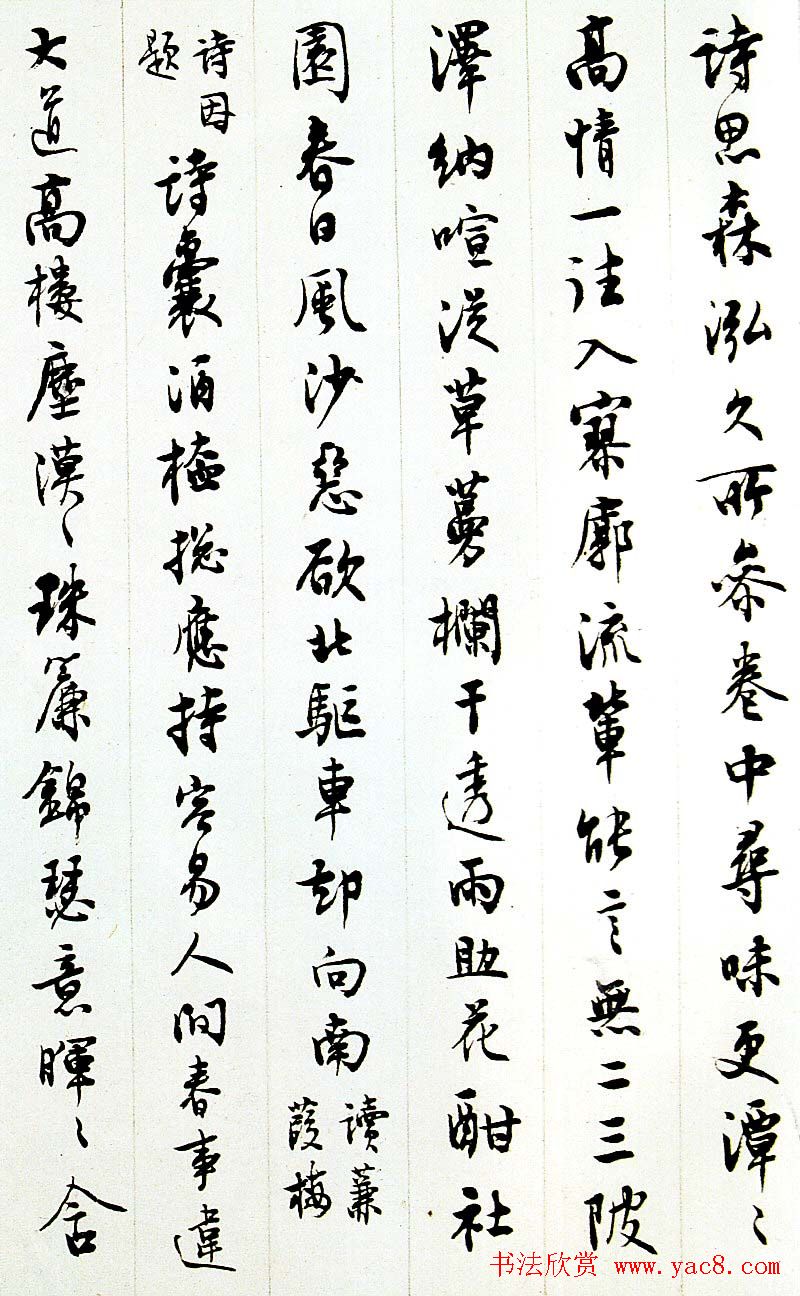 詩思森泓久所參卷中尋味更潭〻
高情一往入寥廓流輩能言無二三陂
澤納喧從草蔓欄干透雨助花酣社
園春日風沙惡欲北驅車却向南讀蒹
葭樓
詩因
題詩囊酒榼總應持容易人間春事違
大道高樓塵漠〻珠簾錦瑟意暉〻含
书法欣赏 www.yac8.com